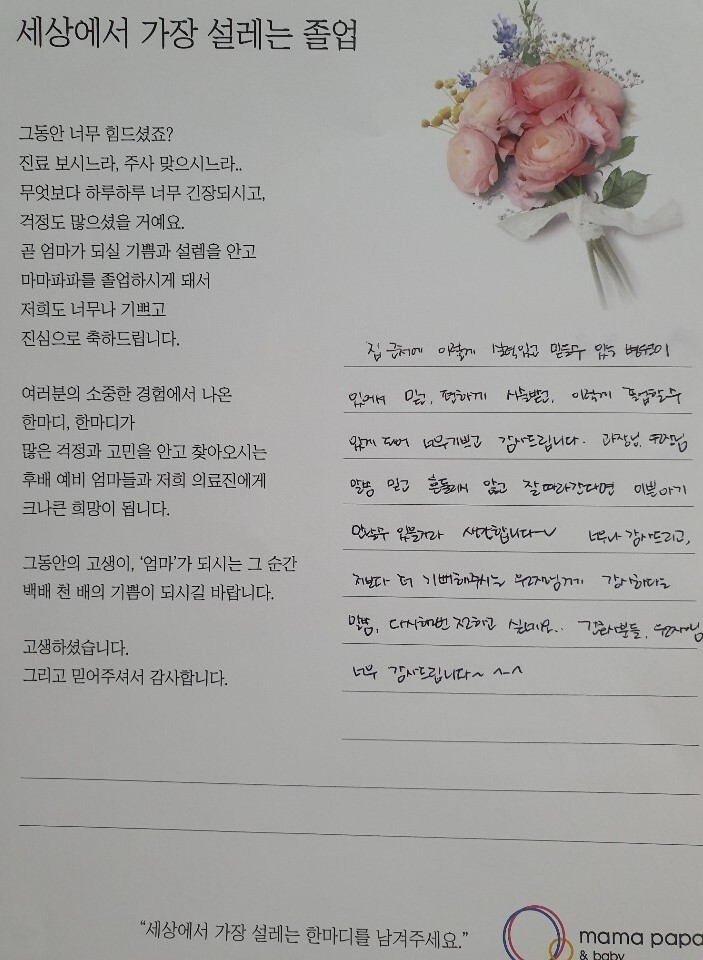 세상에서 가장 설레는 졸업
그동안 너무 힘드셨죠?
진료 보시느라, 주사 맞으시느라..
무엇보다 하루하루 너무 긴장되시고,
걱정도 많으셨을 거예요.
곧 엄마가 되실 기쁨과 설렘을 안고
마마파파를 졸업하시게 돼서
저희도 너무나 기쁘고
진심으로 축하드립니다.
여러분의 소중한 경험에서 나온
한마디, 한마디가
많은 걱정과 고민을 안고 찾아오시는
후배 예비 엄마들과 저희 의료진에게
크나큰 희망이 됩니다.
그동안의 고생이, '엄마'가 되시는 그 순간
백배 천 배의 기쁨이 되시길 바랍니다.
고생하셨습니다.
그리고 믿어주셔서 감사합니다.
집 근처에 이렇게 실력있고 믿을수 있는 병원이
있어서 믿고, 편하게 시술받고, 이렇게 졸업할수
있게 되어 너무 기쁘고 감사드립니다. 과장님, 원장님
말씀 믿고 흔들리지 않고 잘 따라간다면 이쁜아기
만날수 있을거라 생각합니다~ 너무나 감사드리고,
저보다 더 기뻐해주시는 감사하다는
말씀, 다시한번 전하고 싶네요.. 간호사분들,
너무 감사드립니다~ ^-^
"세상에서 가장 설레는 한마디를 남겨주세요."
mama papa
& baby